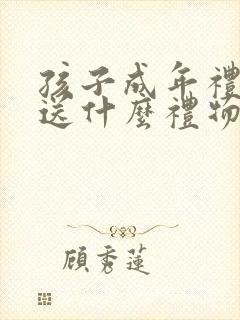 孩子成年禮
送什麼禮物
顧秀蓮